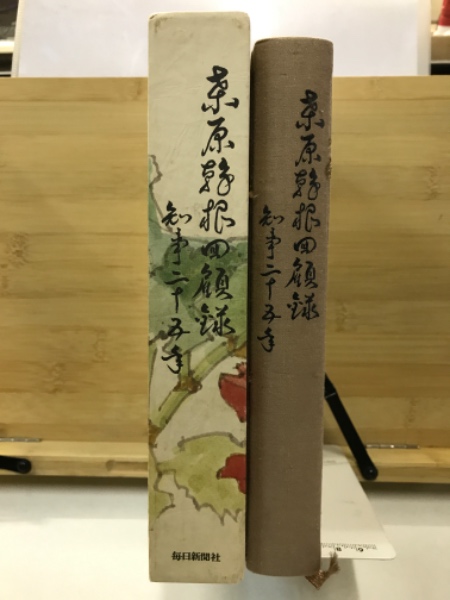 桒原幹根回顧録
知事二十五年
毎日新聞社
桒原幹根回顧録
知事二十五年